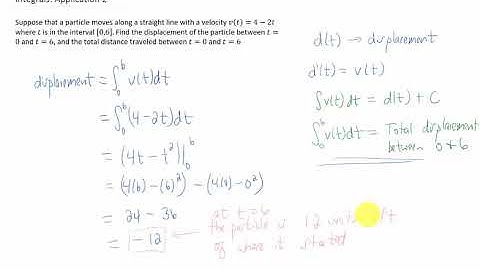 Integrals: Application 2
Suppose that a particle moves along a straight line with a velocity v(t) = 4 − 2t
where t is in the interval [0,6]. Find the displacement of the particle between t =
0 and t = 6, and the total distance traveled between t = 0 and t = 6
displacement = ∫₀⁶ v(t)dt
= ∫₀⁶ (4-2t)dt
= (4t - t²)|₀⁶
= (4(6) - (6)²) - (4(0) - 0²)
= 24 - 36
= -12
at t=6
the particle is 12 units left
of where it started
d(t) → displacement
d'(t) = v(t)
∫v(t)dt = d(t) + C
∫₀⁶ v(t)dt = Total displacement
between 0 + 6